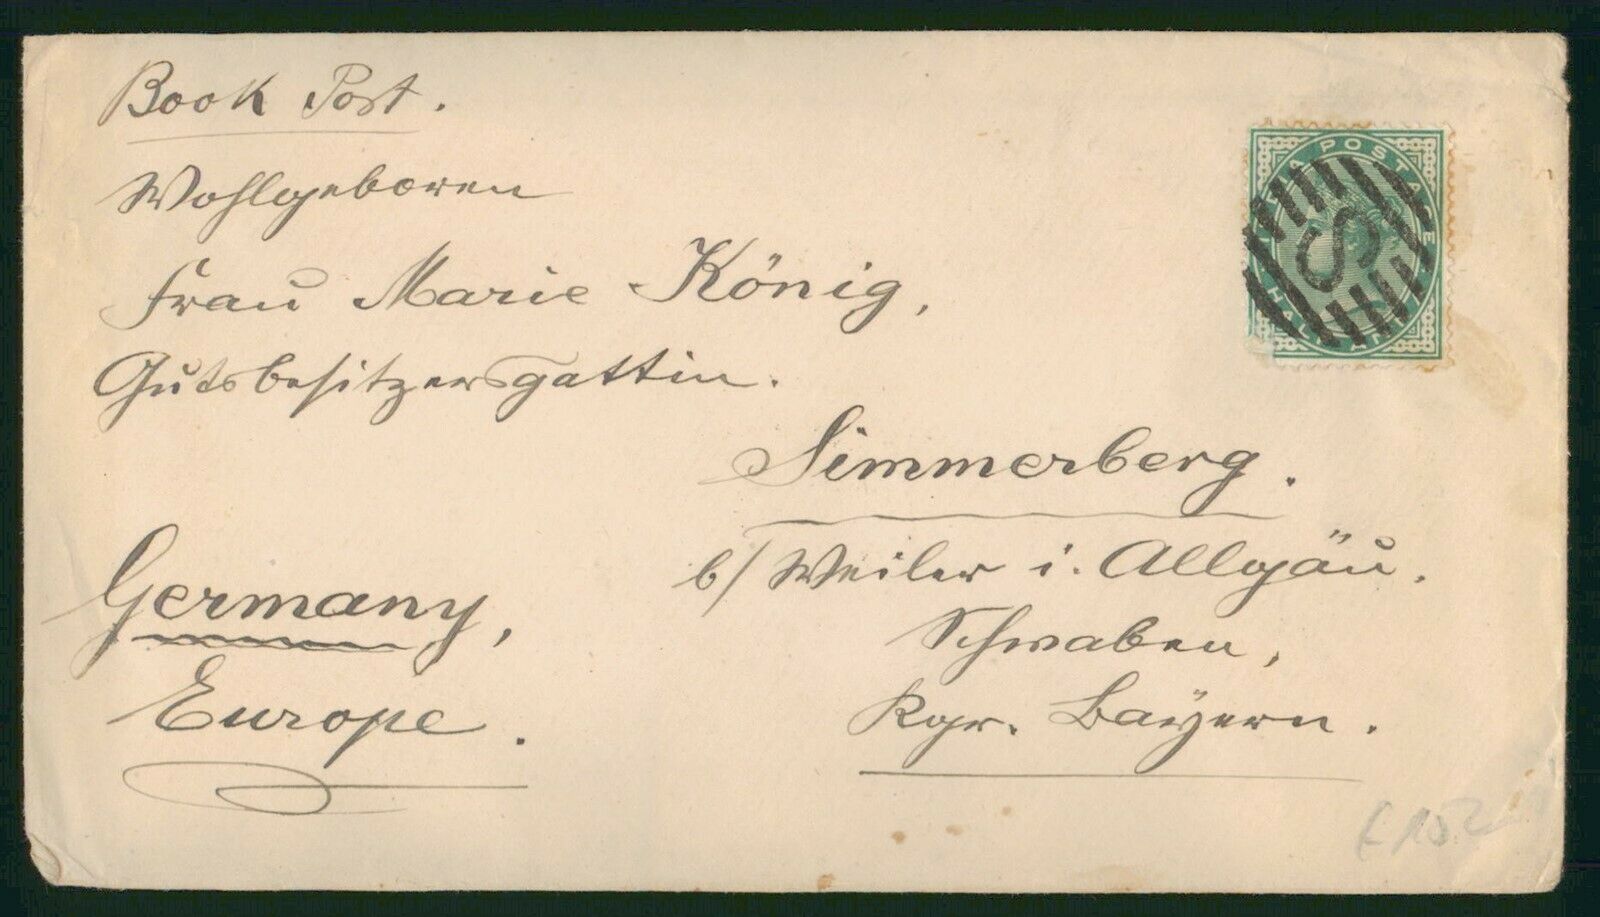 Book Post.
Wohlgeboren
Frau Marie König,
Gutsbesitzersgattin.
Simmerberg.
b/ Weiler i. Allgäu.
Schwaben,
Kgr. Bayern.
Germany,
Europe.
A POSTAGE
HA
S